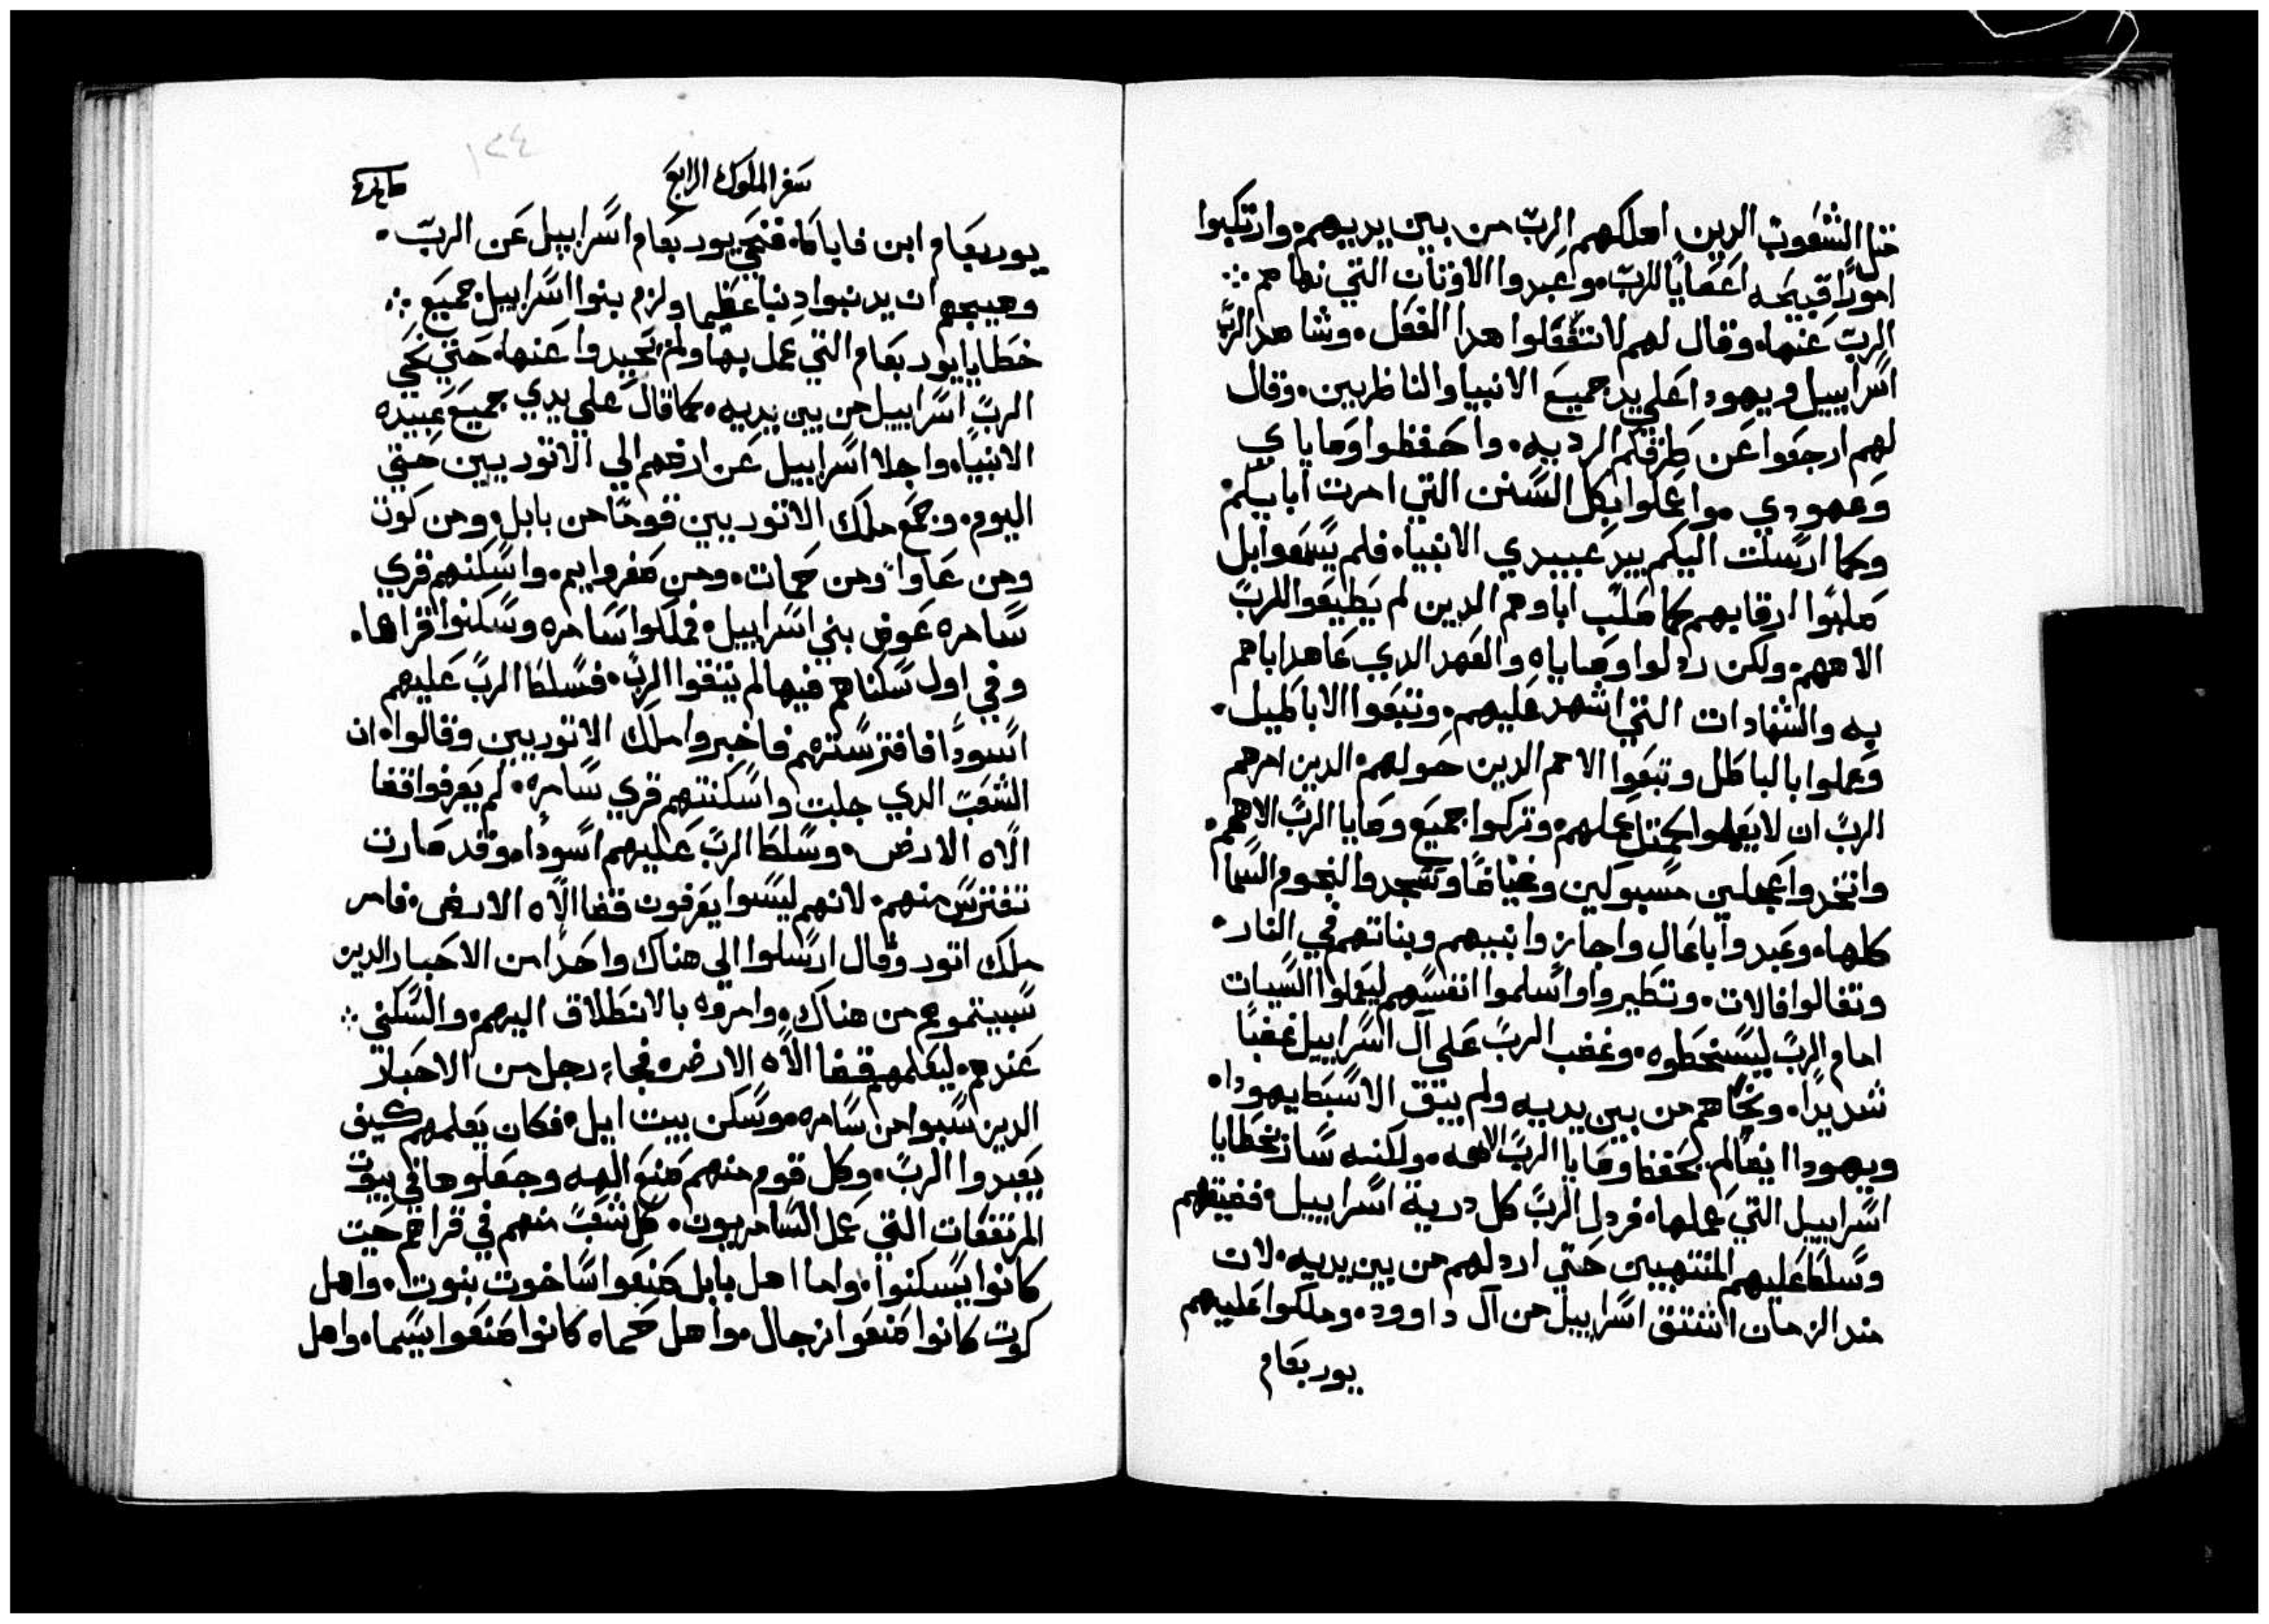 مثل الشعوب الدين اهلكهم الرب من بين يديهم وارتكبوا
امورًا قبيحه اعصايا للرب وعبدوا الاوتان التي نهاهم
الرب عنها وقال لهم لا تفعلوا هدا الفعل وشاهد الرب
اسراييل ويهودا علي يد جميع الانبيا والناظريين وقال
لهم ارجعوا عن طرقكم الرديه واحفظوا وصاياي
وعهودي واعملوا بكل السنن التي امرت ابايكم
وكما ارسلت اليكم بيد عبيدي الانبياء فلم يسمعوا بل
صلبوا ارقابهم كما صلب اباوهم الدين لم يطيعوا للرب
الاههم ولكن ردلوا وصاياه والعهد الدي عاهد اباهم
به والشهادات التي اشهد عليهم وتبعوا الاباطيل
وعملوا بالباطل وتبعوا الامم الدين حولهم الدين امرهم
الرب ان لا يعملوا كمتل عملهم وتركوا جميع وصايا الرب الاههم
واتخدوا عجلين مسبوكين وغياضًا وسجدوا لنجوم السما
كلها وعبدوا باعال واجازوا بنيهم وبناتهم في النار
وتفالوا فالات وتطيروا واسلموا انفسهم ليعملوا السيات
امام الرب ليسخطوه وغضب الرب علي آل اسراييل غضبًا
شديدًا ونحاهم من بين يديه ولم يبق الا سبط يهودا
ويهودا ايضًا لم يحفظ وصايا الرب الاهه ولكنه سار بخطايا
اسراييل التي عملها فردل الرب كل درية اسراييل فضيقهم
وسلط عليهم المنتهبين حتي اردلهم من بين يديه لان
مند الزمان اشتق اسراييل من آل داوود وملكوا عليهم
يوربعام
سفر الملوك الرابع
١٢٤
يوربعام ابن ناباط فنحي يوربعام اسراييل عن الرب
وهيجهم ان يدنبوا دنبا عظيما ولزم بنوا اسراييل جميع
خطايا يوربعام التي عمل بها ولم يحيدوا عنها حتي نحي
الرب اسراييل من بين يديه كما قال علي يدي جميع عبيده
الانبياء واجلا اسراييل عن ارضهم الي الاتوريين حتي
اليوم وجمع ملك الاتوريين قومًا من بابل ومن كوت
ومن عاوا ومن حمات ومن صفروايم واسكنهم قري
سامره عوض بني اسراييل فملكوا سامره وسكنوا قراها
وفي اول سكناهم فيها لم يتقوا الرب فسلط الرب عليهم
اسودًا فافترستهم فاخبروا ملك الاتوريين وقالوا ان
الشعب الدي جلبت واسكنتهم قري سامره لم يعرفوا قضا
الاه الارض وسلط الرب عليهم اسودًا وقد صارت
تفترس منهم لانهم ليسوا يعرفون قضا الاه الارض فامر
ملك اتور وقال ارسلوا الي هناك واحدًا من الاحبار الدين
سبيتموهم من هناك وامروه بالانطلاق اليهم والسكني
عندهم ليعلمهم قضا الاه الارض فجاء رجل من الاحبار
الدين سبوا من سامره وسكن بيت ايل فكان يعلمهم كيف
يعبدوا الرب وكل قوم منهم صنع الهه وجعلوها في بيوت
المرتفعات التي عمل السامريون كل شعب منهم في قراهم حيت
كانوا يسكنوا واما اهل بابل صنعوا ساخوت بنوت واهل
كوت كانوا صنعوا نرجال واهل حماه كانوا صنعوا يسيما واهل